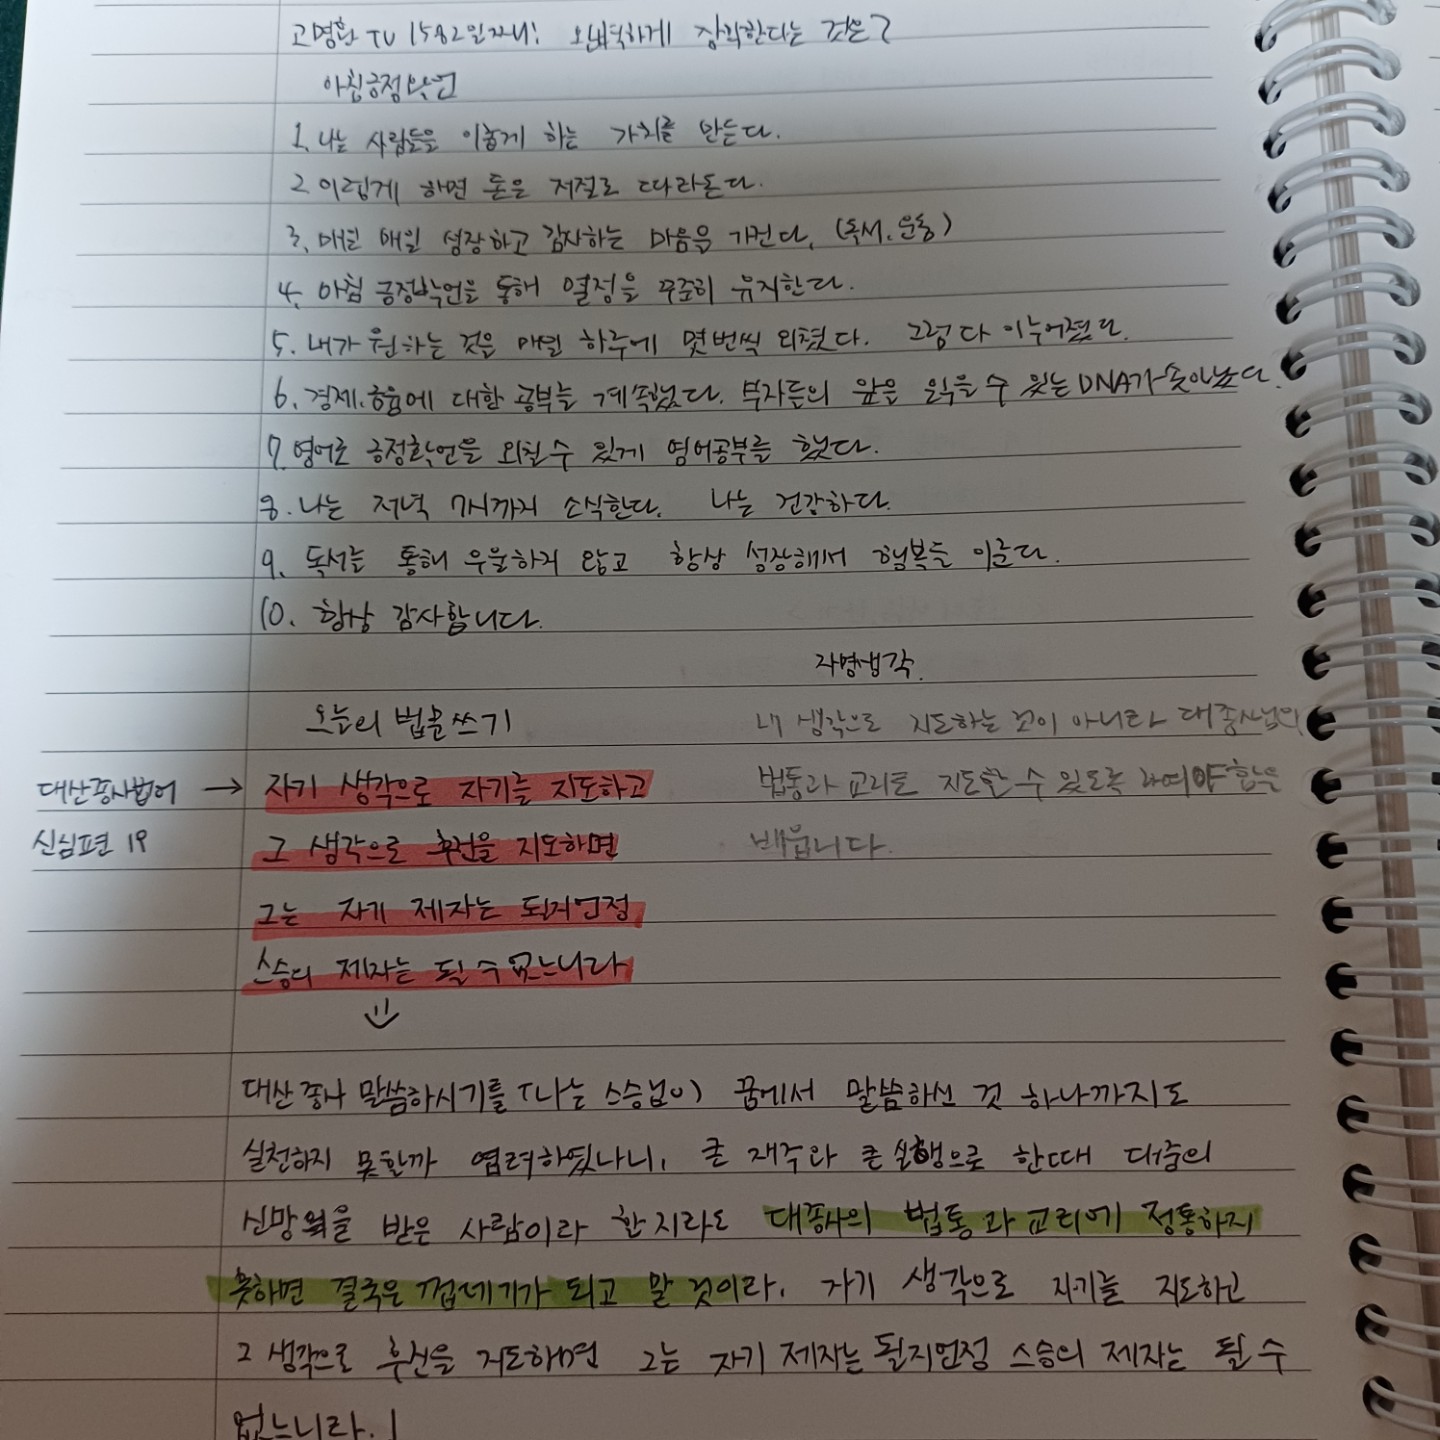 고명환 TV 1582일째니! 완벽하게 장악한다는 것은?
아침긍정확언
1. 나는 사람들을 이롭게 하는 가치를 만든다.
2 이렇게 하면 돈은 저절로 따라온다.
3. 매일 매일 성장하고 감사하는 마음을 가진다. (독서.운동)
4. 아침 긍정확언을 통해 열정을 꾸준히 유지한다.
5. 내가 원하는 것은 매일 하루에 몇번씩 외쳤다. 그럼 다 이누어졌다.
6. 경제.금융에 대한 공부를 계속했다. 부자들의 앞을 읽을 수 있는 DNA가 솟아났다.
7. 영어로 긍정확언을 외칠 수 있게 영어공부를 했다.
8. 나는 저녁 7시까지 소식한다. 나는 건강하다.
9. 독서를 통해 우울하지 않고 항상 성장해서 행복을 이룬다.
10. 항상 감사합니다.
자명생각.
오늘의 법문쓰기
내 생각으로 지도하는 것이 아니라 대종사님의
대산종사법어 → 자기 생각으로 자기를 지도하고
법통과 교리로 지도할 수 있도록 하여야 함을
신심편 19
그 생각으로 후진을 지도하면
배웁니다.
그는 자기 제자는 될지언정
스승의 제자는 될 수 없느니라
대산 종사 말씀하시기를 「나는 스승님이 꿈에서 말씀하신 것 하나까지도
실천하지 못할까 염려하였나니, 큰 재주와 큰 실행으로 한때 대중의
신망을 받은 사람이라 할지라도 대종사의 법통과 교리에 정통하지
못하면 결국은 껍데기가 되고 말 것이라. 자기 생각으로 자기를 지도하고
그 생각으로 후진을 지도하면 그는 자기 제자는 될지언정 스승의 제자는 될 수
없느니라.」